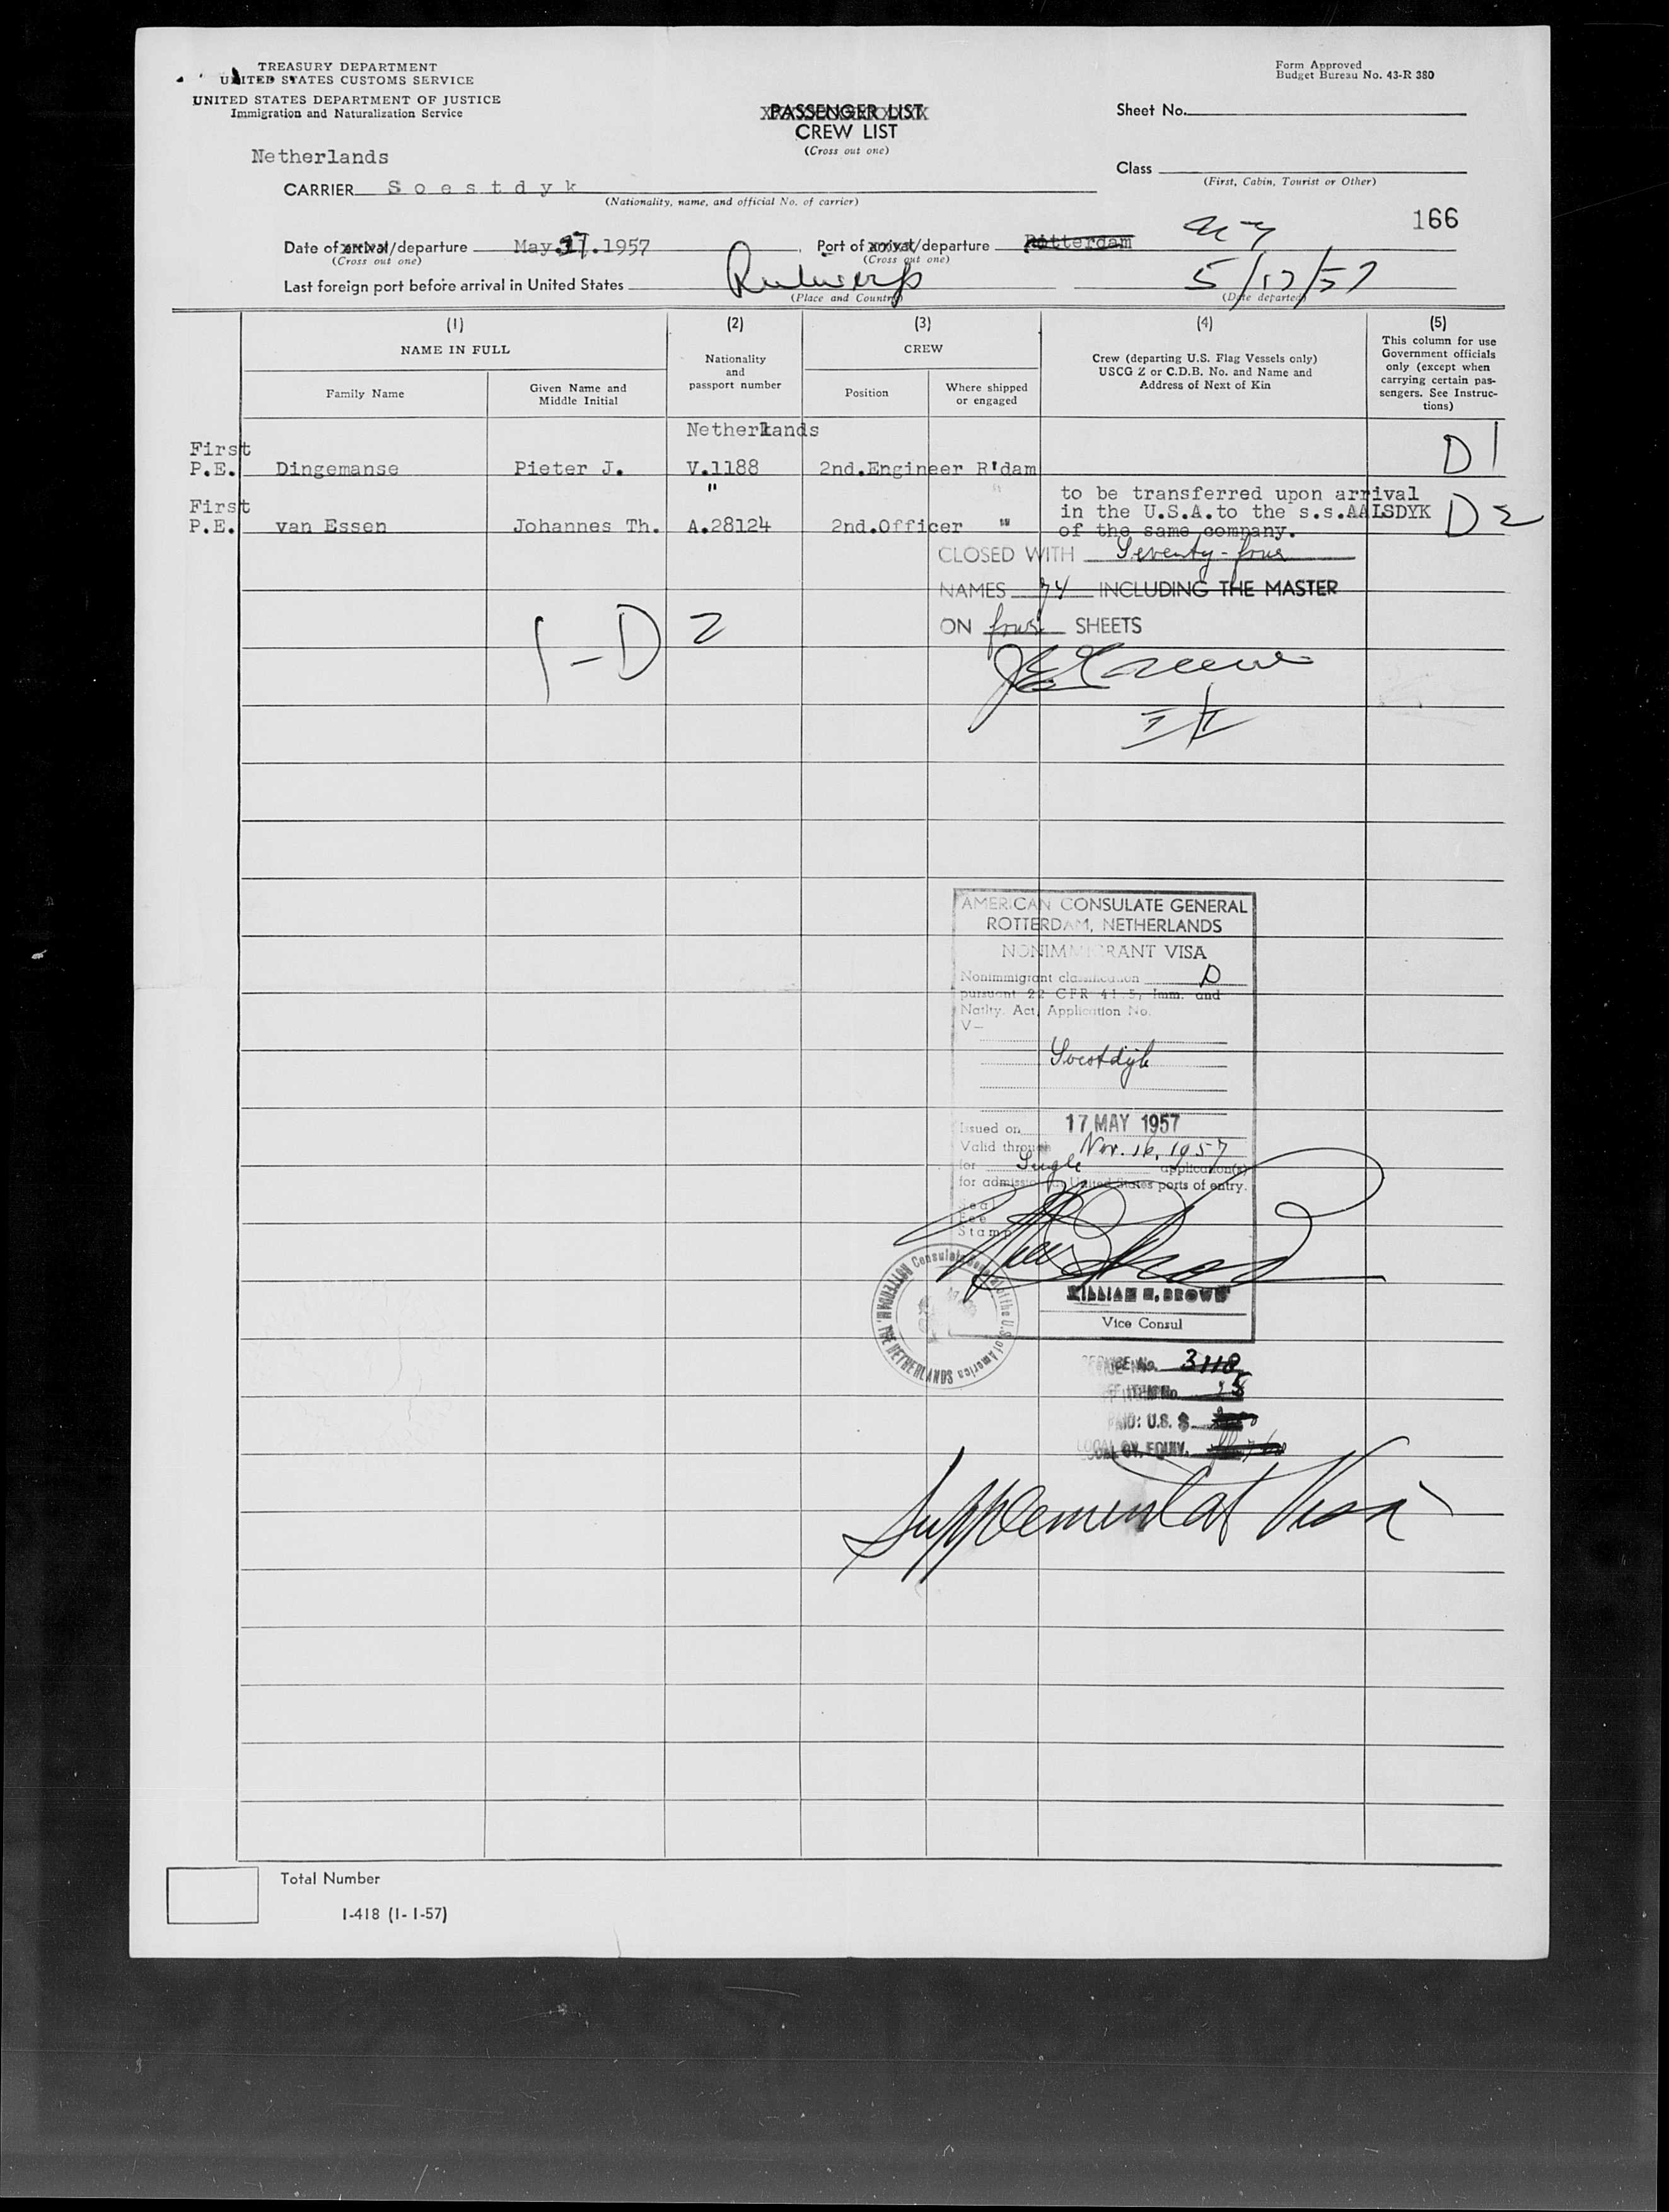 TREASURY DEPARTMENT
UNITED STATES CUSTOMS SERVICE
UNITED STATES DEPARTMENT OF JUSTICE
Immigration and Naturalization Service
Form Approved
Budget Bureau No. 43-R 380
PASSENGER LIST
CREW LIST
(Cross out one)
Sheet No.
Class
(First, Cabin, Tourist or Other)
Netherlands
CARRIER Soestdyk
(Nationality, name, and official No. of carrier)
166
Date of arrival/departure May.17.1957
(Cross out one)
Port of arrival/departure Rotterdam
(Cross out one)
Last foreign port before arrival in United States Antwerp 5/17/57
(Place and Country)
(Date departed)
(1) (2) (3) (4) (5)
NAME IN FULL
Family Name
Given Name and
Middle Initial
Nationality
and
passport number
CREW
Position
Where shipped
or engaged
Crew (departing U.S. Flag Vessels only)
USCG Z or C.D.B. No. and Name and
Address of Next of Kin
This column for use
Government officials
only (except when
carrying certain pas-
sengers. See Instruc-
tions)
Netherlands
First
P.E. Dingemanse Pieter J. V.1188 2nd.Engineer R'dam D1
First "
P.E. van Essen Johannes Th. A.28124 2nd.Officer " D2
to be transferred upon arrival
in the U.S.A.to the s.s.AALSDYK
of the same company.
CLOSED WITH Seventy-four
NAMES 74 INCLUDING THE MASTER
ON four SHEETS
1-D 2
AMERICAN CONSULATE GENERAL
ROTTERDAM, NETHERLANDS
NONIMMIGRANT VISA
Nonimmigrant classification D
pursuant 22 CFR 41.5, Imm. and
Natlty. Act, Application No.
V-
Soestdijk
Issued on 17 MAY 1957
Valid through Nov. 16, 1957
for Single application(s)
for admission at United States ports of entry.
Seal
Fee
Stamp
WILLIAM H. BROWN
Vice Consul
Consulate General of the U.S. of America
ROTTERDAM, THE NETHERLANDS
SERVICE No. 3118
ITEM No.
PAID: U.S. $
LOCAL CY. EQUIV.
Supplemental Visa
Total Number
I-418 (1-1-57)